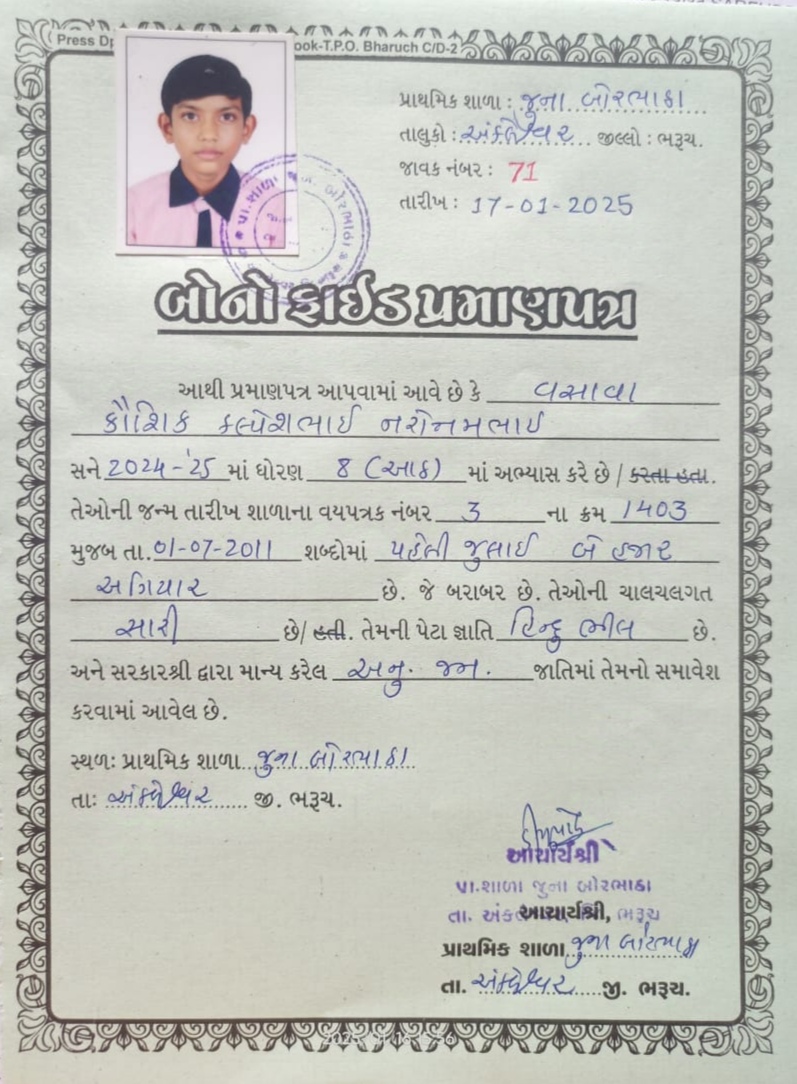 Press Dp
ook-T.P.O. Bharuch C/D-2
પ્રાથમિક શાળા : જુના બોરભાઠા
તાલુકો : અંકલેશ્વર જીલ્લો : ભરૂચ.
જાવક નંબર : 71
તારીખ : 17-01-2025
બોનોફાઈડ પ્રમાણપત્ર
આથી પ્રમાણપત્ર આપવામાં આવે છે કે વસાવા
કૌશિક કલ્પેશભાઈ નરોત્તમભાઈ
સને 2024-'25 માં ધોરણ 8 (આઠ) માં અભ્યાસ કરે છે / કરતા હતા.
તેઓની જન્મ તારીખ શાળાના વયપત્રક નંબર 3 ના ક્રમ 1403
મુજબ તા. 01-07-2011 શબ્દોમાં પહેલી જુલાઈ બે હજાર
અગિયાર છે. જે બરાબર છે. તેઓની ચાલચલગત
સારી છે/ હતી. તેમની પેટા જ્ઞાતિ હિન્દુ ભીલ છે.
અને સરકારશ્રી દ્વારા માન્ય કરેલ અનુ. જન. જાતિમાં તેમનો સમાવેશ
કરવામાં આવેલ છે.
સ્થળ: પ્રાથમિક શાળા જુના બોરભાઠા
તા: અંકલેશ્વર જી. ભરૂચ.
આચાર્યશ્રી
પ્રા.શાળા જુના બોરભાઠા
તા. અંકલે ભરૂચ
આચાર્યશ્રી,
પ્રાથમિક શાળા જુના બોરભાઠા
તા. અંકલેશ્વર જી. ભરૂચ.